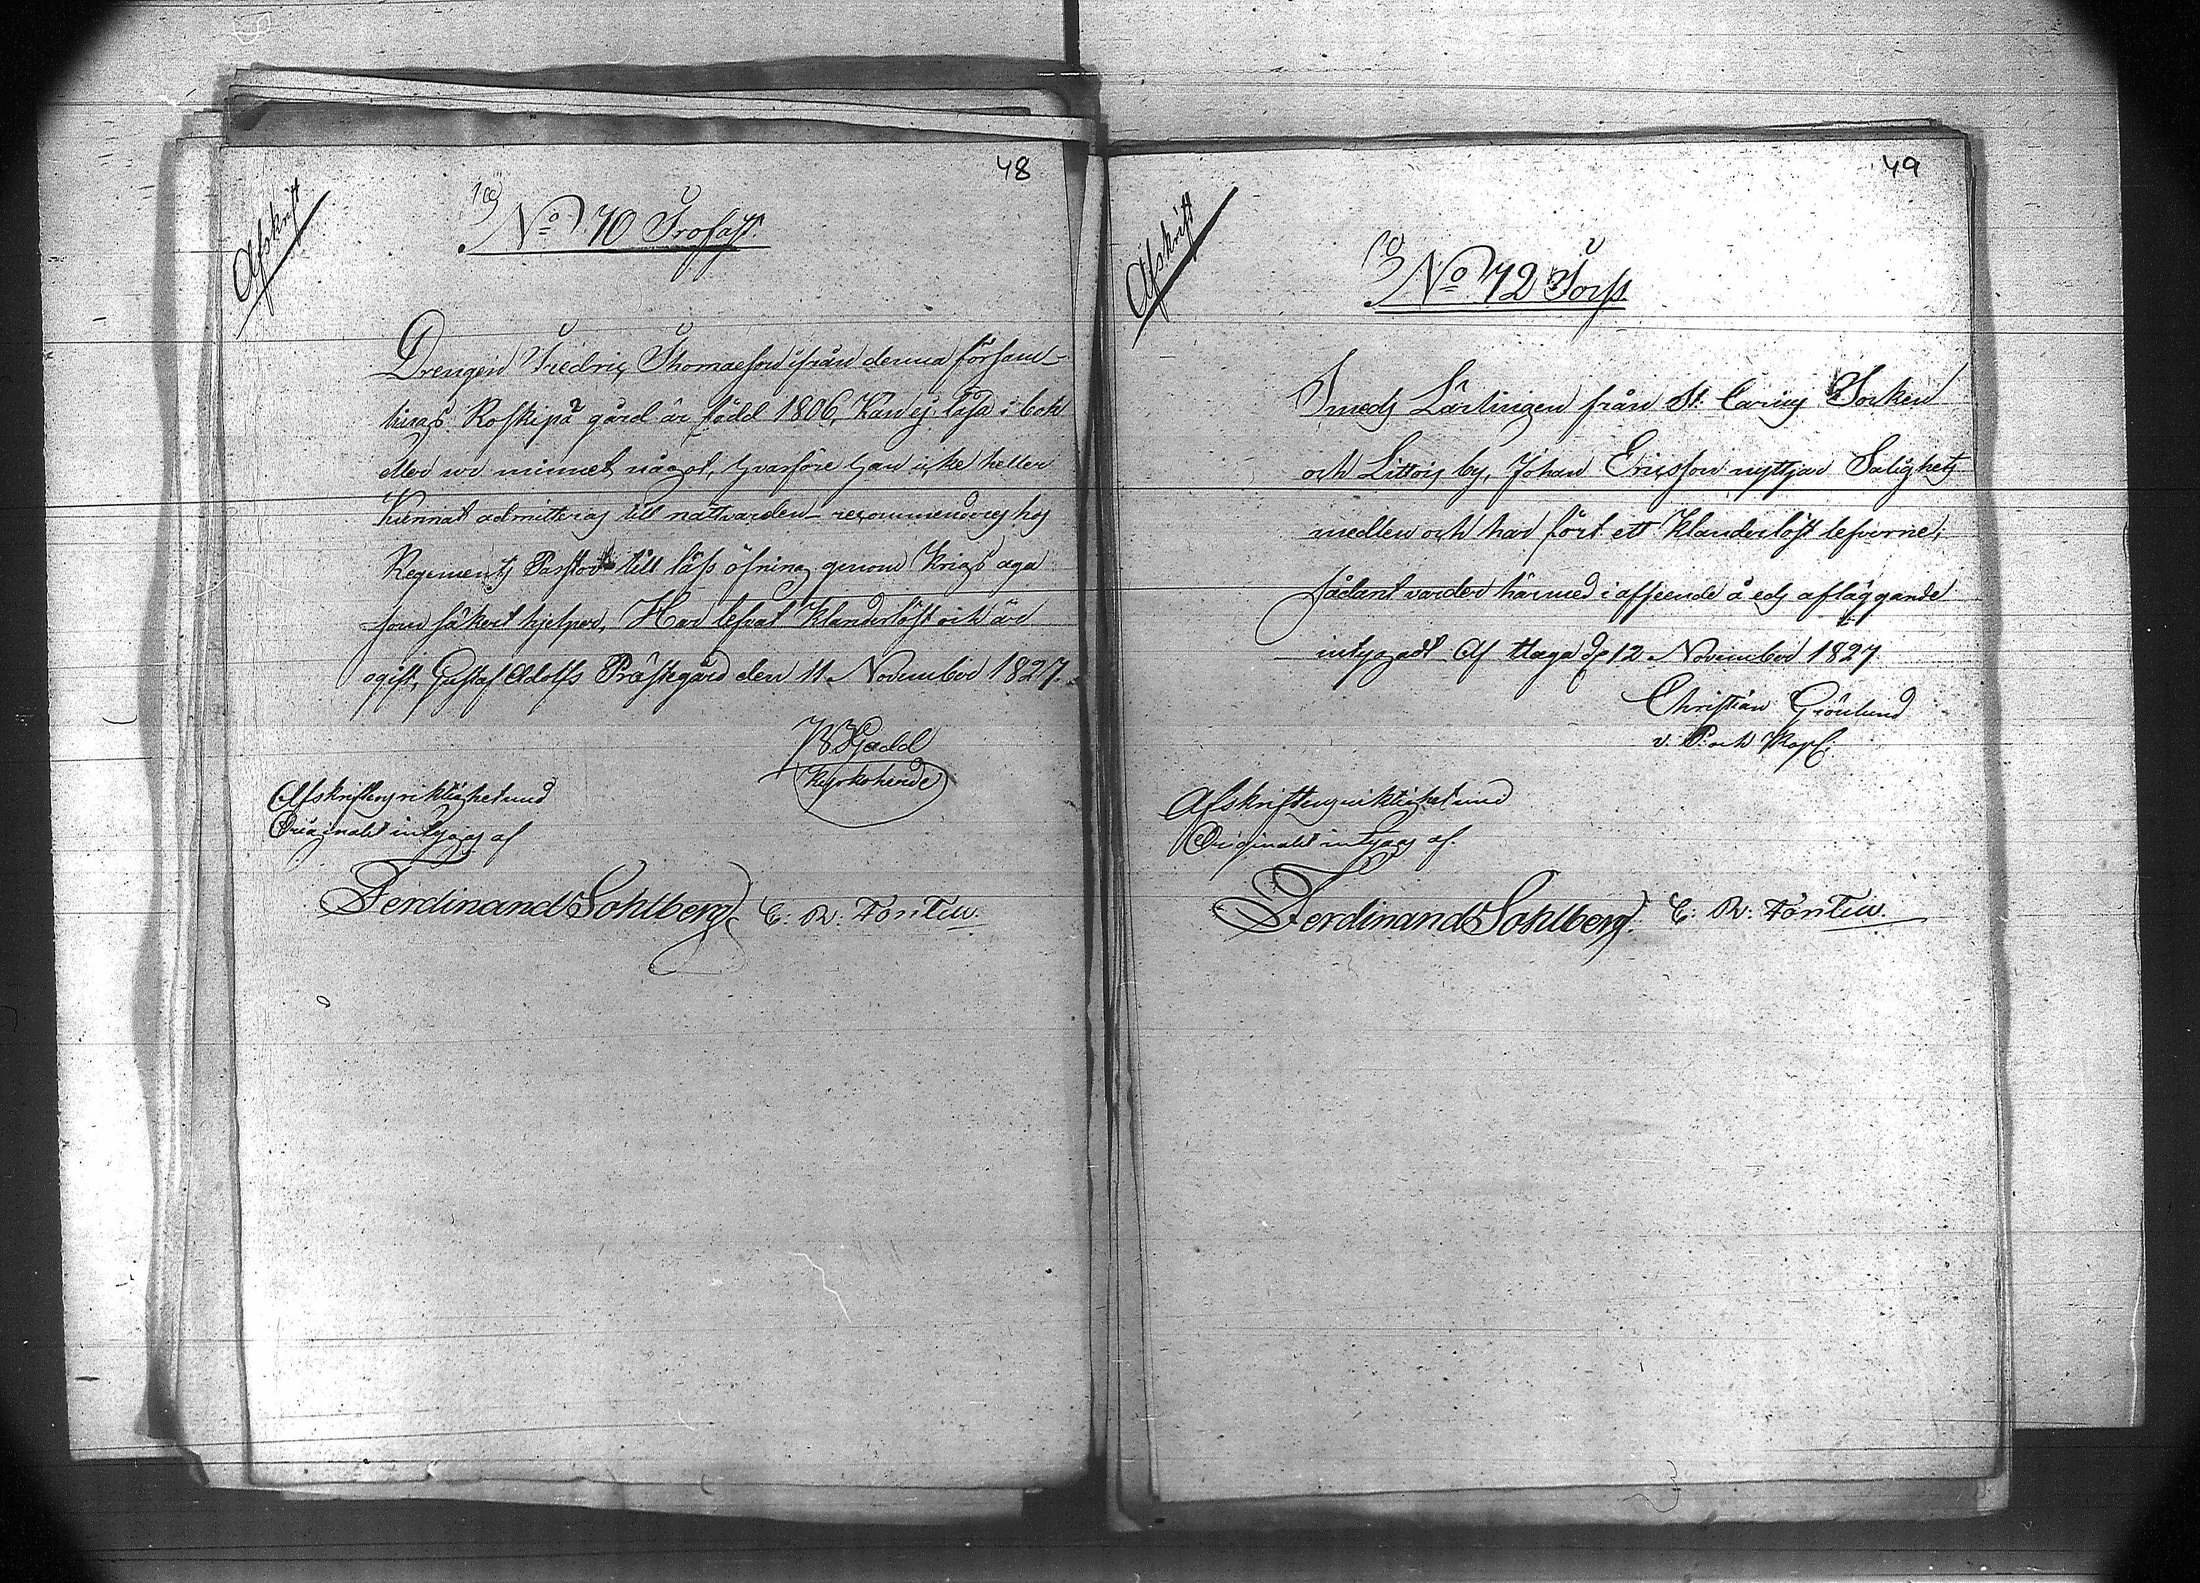 48
Afskrift
No 70 Trofast
Drengen Fredric Thomasson ifrån denna försam-
lings Roskipä gård är född 1806, Kan ej läsa i bok
eller ur minnet något, hvarföre han icke heller
Kunnat admitteras till nattvarden – recommenderas hos
Regements Pastor till läse öfning genom Krigs aga
som säkert hjelper, Har lefvat Klanderlöst och är
ogift, Gustaf Adolfs Prästegård den 11 November 1827.
Gadd
Kyrkoherde
Afskriftens riktighet med
Originalet intygas af
Ferdinand Sohlberg E: R: Fontell.
49
Afskrift
No 72 Torss
Smeds Lärlingen från St. Carins Socken
och Littois by, Johan Ericsson nyttjar Salighets
medlen och har fört ett Klanderlöst lefverne;
sådant varder härmed i afseende å eds afläggande
intygadt Af
12 November 1827
Christian Grönlund
v. P. och Kapl:
Afskriftens riktighet med
Originalet intygas af.
Ferdinand Sohlberg. E: R: Fontell.